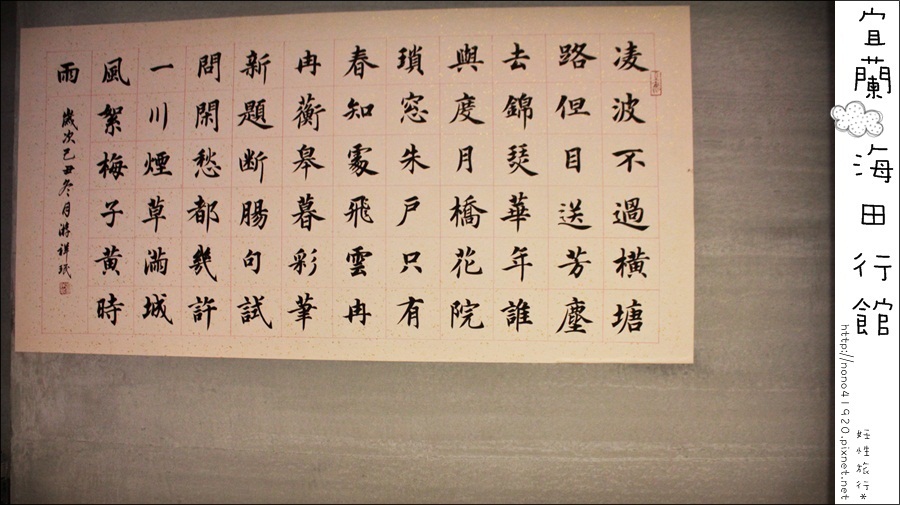 凌波不過橫塘
路但目送芳塵
去錦瑟華年誰
與度月橋花院
瑣窓朱戶只有
春知處飛雲冉
冉蘅皋暮彩筆
新題断腸句試
問閑愁都幾許
一川煙草滿城
風絮梅子黃時
雨
歲次己丑冬月游祥珉
宜蘭海田行館
http://nono41920.pixnet.net
妊性旅行*